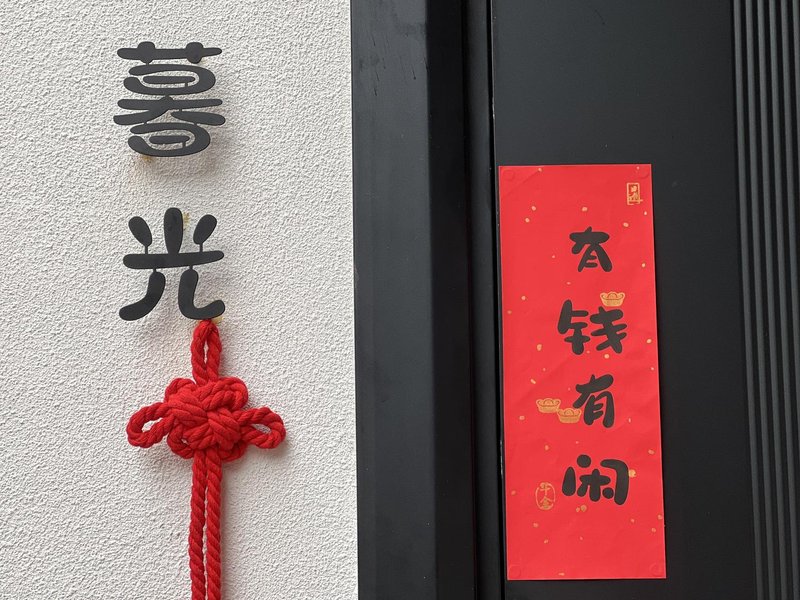 暮光
有钱有闲